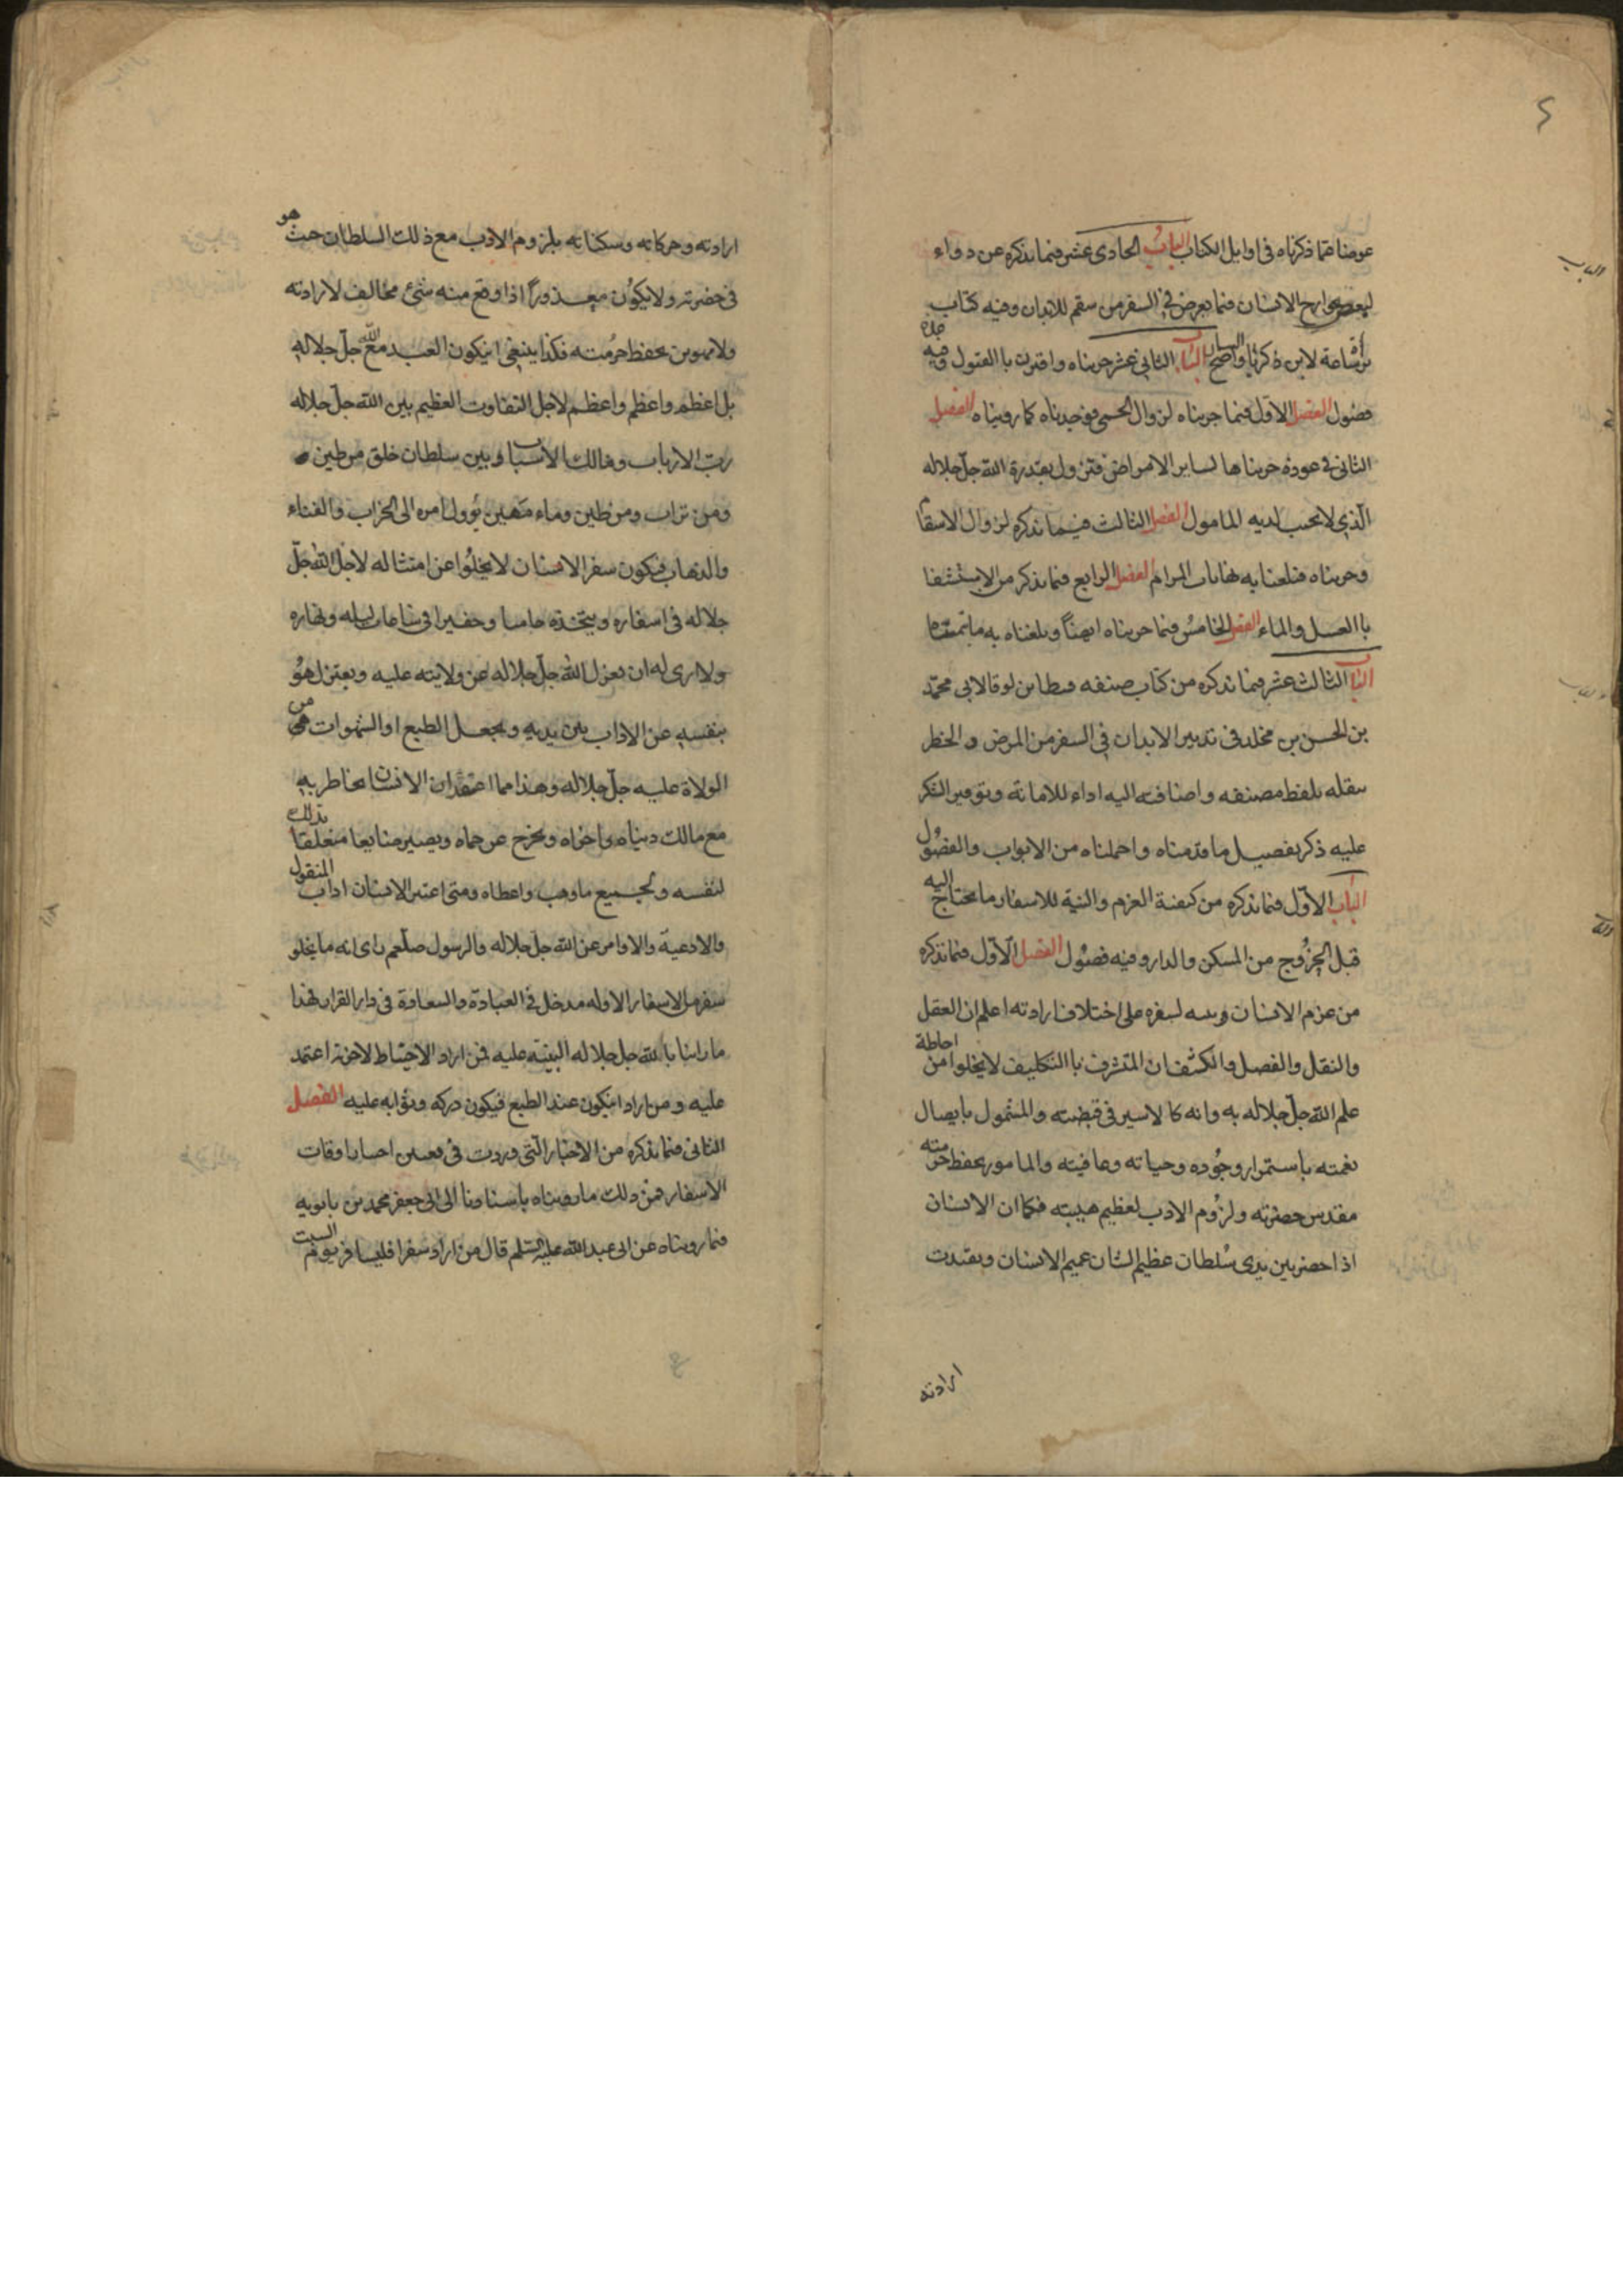 عوضناهما ذكرناه فى اوايل الكتاب الباب الحادى عشر فيما نذكره من دواء
لبعض جوارح الانسان فيما يعرض فى السفر من سقم للابدان وفيه كتاب
برء ساعة لابن زكريا واضح البيان الباب الثانى عشر جربناه واقترن باالقبول وفيه جملة
فصول الفصل الاول فيما جربناه لزوال الحمى فوجدناه كما رويناه الفصل
الثانى فى عوذة جربناها لساير الامراض فتزول بقدرة الله جل جلاله
الذى لا يخيب لديه المامول الفصل الثالث فيما نذكره لزوال الاسقام
وجربناه فبلغنا به نهايات المرام الفصل الرابع فيما نذكر من الاستشفا
باالعسل والماء الفصل الخامس فيما جربناه ايضاً وبلغناه به ما تمنيناه
الباب الثالث عشر فيما نذكره من كتاب صنفه قسطا بن لوقا لابى محمد
بن الحسن بن مخلد فى تدبير الابدان فى السفر من المرض والخطر
ننقله بلفظ مصنفه واضافته اليه اداء للامانة وتوفير الشكر
عليه ذكر تفصيل ما قدمناه واجملناه من الابواب والفصول
الباب الاول فيما نذكره من كيفية العزم والنية للاسفار وما يحتاج اليه
قبل الخروج من المسكن والدار وفيه فصول الفصل الاول فيما نذكره
من عزم الانسان ونيته لسفره على اختلاف ارادته اعلم ان العقل
والنقل والفضل والكشف ان المتشرف باالتكليف لا يخلوا من احاطة
علم الله جل جلاله به وانه كالاسير فى قبضته والمشمول بايصال
نعمته باستمرار وجوده وحياته وعافيته والمامور بحفظ حرمته
مقدس حضرته ولزوم الادب لعظيم هيبته فكما ان الانسان
اذا حضر بين يدى سلطان عظيم الشان عميم الاحسان ويقيدت
ارادته
ارادته وحركاته وسكناته بلزوم الادب مع ذلك السلطان حيث هو
فى حضرته ولا يكون معذوراً اذا وقع منه شئ مخالف لارادته
ولا مهون بحفظ حرمته فكذا ينبغى ان يكون العبد مع الله جل جلاله
بل اعظم واعظم واعظم لاجل التفاوت العظيم بين الله جل جلاله
رب الارباب ومالك الاسباب وبين سلطان خلق من طين
ومن تراب ومن طين وماء مهين يؤول امره الى الخراب والفناء
والذهاب فيكون سفر الانسان لا يخلوا عن امتثاله لاجل الله جل
جلاله فى اسفاره ويتخذه حاميا وخفيرا فى ساعات ليله ونهاره
ولا ارى له ان يعزل الله جل جلاله عن ولايته عليه ويعتزل هو
بنفسه عن الاداب بين يديه ويجعل الطبع او الشهوات هى من
الولاة عليه جل جلاله وهذا مما اعتقد ان الانسان يخاطر به
مع مالك دنياه واخراه ويخرج عن حماه ويصير ضايعا متعلقا بذلك
لنفسه ولجميع ما وهب واعطاه ومتى اعتبر الانسان اداب المنقول
والادعية والاوامر عن الله جل جلاله والرسول صلعم راى انه ما يخلو
سفر من الاسفار الا وله مدخل فى العبادة والسعادة فى دار القرار فهذا
ما راينا بالله جل جلاله التنبيه عليه فمن اراد الاحتياط لاخرته اعتمد
عليه ومن اراد ان يكون عبد الطبع فيكون دركه وثوابه عليه الفصل
الثانى فيما نذكره من الاخبار التى وردت فى تعيين اختيار اوقات
الاسفار فمن ذلك ما رويناه باسنادنا الى ابى جعفر محمد بن بابويه
فيما رويناه عن ابى عبد الله عليه السلم قال من اراد سفرا فليسافر يوم السبت